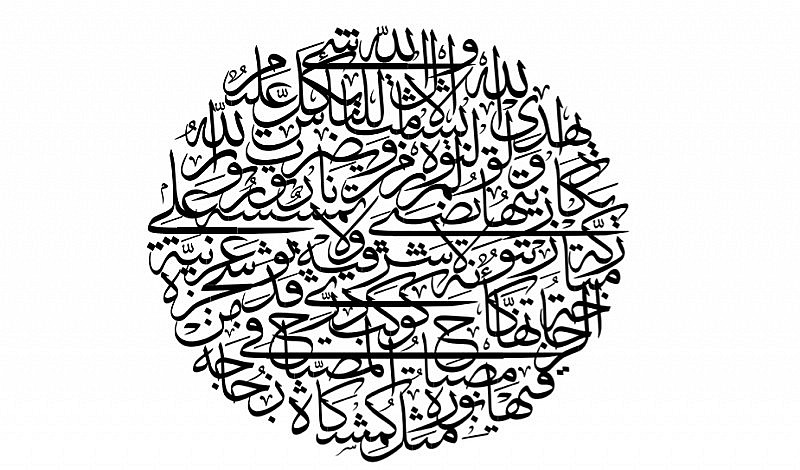 مثل نوره كمشكاة فيها مصباح المصباح في زجاجة
الزجاجة كأنها كوكب دري يوقد من شجرة
مباركة زيتونة لا شرقية ولا غربية
يكاد زيتها يضيء ولو لم تمسسه نار نور على نور
يهدي الله لنوره من يشاء ويضرب الله
الأمثال للناس والله بكل شيء عليم